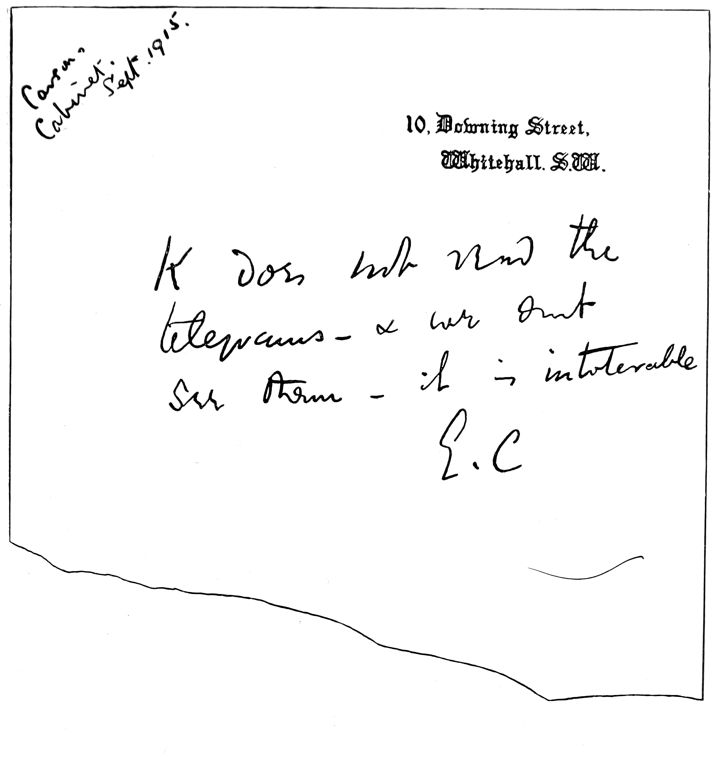 Carson,
Cabinet.
Sept. 1915.
10, Downing Street,
Whitehall. S.W.
K does not read the
telegrams – & we dont
see them – it is intolerable
E. C